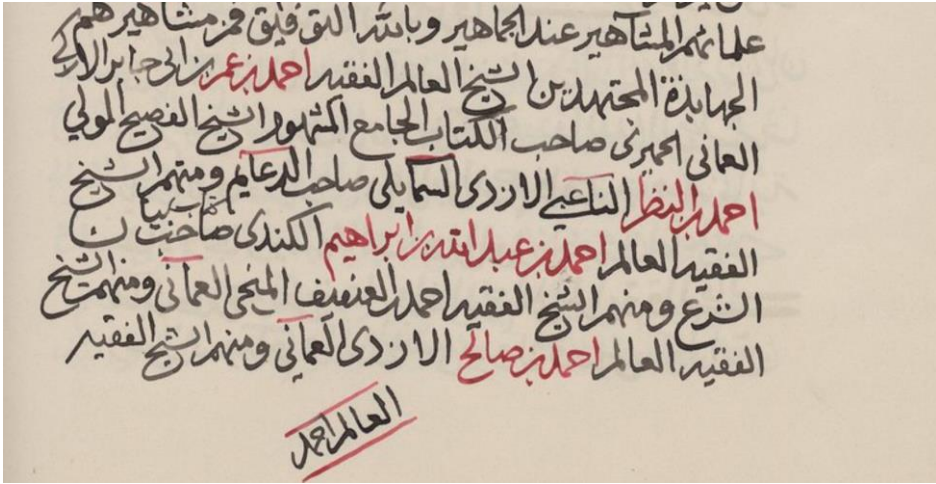 علمائهم المشاهير عند الجماهير وبالله التوفيق فمن مشاهيرهم
الجهابذة المجتهدين الشيخ العالم الفقيه احمد بن عمر بن ابي جابر الازكي
العماني الحميري صاحب الكتاب الجامع المشهور الشيخ الفصيح المولي
احمد بن النظر الناعبي الازدي السمايلي صاحب الدعايم ومنهم الشيخ
الفقيه العالم احمد بن عبد الله بن ابراهيم الكندي صاحب كتاب بيان
الشرع ومنهم الشيخ الفقيه احمد العنفيف المنحي العماني ومنهم الشيخ
الفقيه العالم احمد بن صالح الازدي العماني ومنهم الشيخ الفقيه
العالم احمد